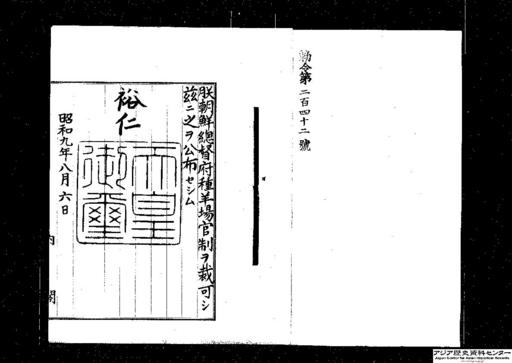 勅令第二百四十二號
朕朝鮮總督府種羊場官制ヲ裁可シ
茲ニ之ヲ公布セシム
裕仁
天皇
御璽
昭和九年八月六日
内閣
アジア歴史資料センター
Japan Center for Asian Historical Records